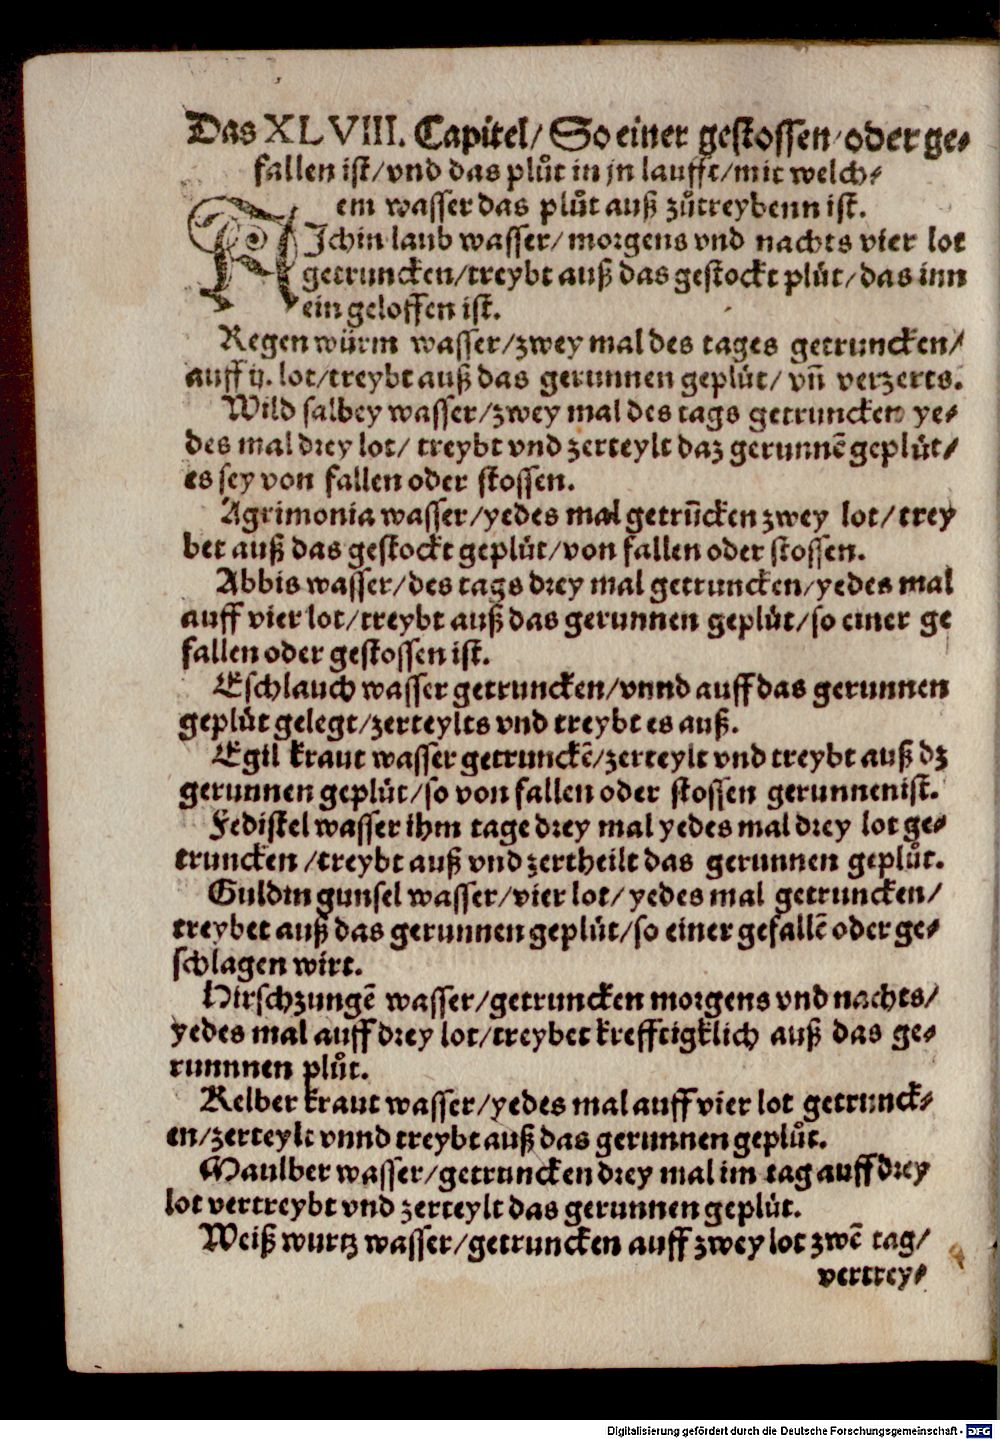 Das XLVIII. Capitel/ So einer gestossen/ oder ge⸗
fallen ist/ vnd das plůt in jn laufft/ mit welch⸗
em wasser das plůt auß zůtreybenn ist.
AIchin laub wasser/ morgens vnd nachts vier lot
getruncken/ treybt auß das gestockt plůt/ das inn
ein geloffen ist.
Regen würm wasser/ zwey mal des tages getruncken/
auff ij. lot/ treybt auß das gerunnen geplůt/ vñ verzerts.
Wild salbey wasser/ zwey mal des tags getruncken ye⸗
des mal drey lot/ treybt vnd zerteylt daz gerunnē geplůt⸗
es sey von fallen oder stossen.
Agrimonia wasser/ yedes mal getrūcken zwey lot/ trey
bet auß das gestockt geplůt/ von fallen oder stossen.
Abbis wasser/ des tags drey mal getruncken/ yedes mal
auff vier lot/ treybt auß das gerunnen geplůt/ so einer ge
fallen oder gestossen ist.
Eschlauch wasser getruncken/ vnnd auff das gerunnen
geplůt gelegt/ zerteylts vnd treybt es auß.
Egil kraut wasser getrunckē/ zerteylt vnd treybt auß dz
gerunnen geplůt/ so von fallen oder stossen gerunnen ist.
Fedistel wasser ihm tage drey mal yedes mal drey lot ge⸗
truncken / treybt auß vnd zertheilt das gerunnen geplůt.
Guldin gunsel wasser/ vier lot/ yedes mal getruncken/
treybet auß das gerunnen geplůt/ so einer gefallē oder ge⸗
schlagen wirt.
Hirschzungē wasser/ getruncken morgens vnd nachts/
yedes mal auff drey lot/ treybet krefftigklich auß das ge⸗
runnnen plůt.
Kelber kraut wasser/ yedes mal auff vier lot getrunck⸗
en/ zerteylt vnnd treybt auß das gerunnen geplůt.
Maulber wasser/ getruncken drey mal im tag auff drey
lot vertreybt vnd zerteylt das gerunnen geplůt.
Weiß wurtz wasser/ getruncken auff zwey lot zwē tag/
vertrey⸗
Digitalisierung gefördert durch die Deutsche Forschungsgemeinschaft - DFG